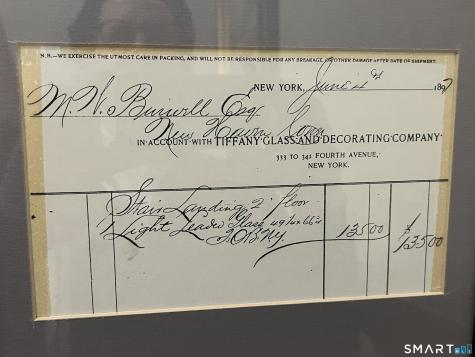 N.B.—WE EXERCISE THE UTMOST CARE IN PACKING, AND WILL NOT BE RESPONSIBLE FOR ANY BREAKAGE, OR OTHER DAMAGE AFTER DATE OF SHIPMENT.
NEW YORK, June 4th 1897
M. W. Burwell Esq.
New Haven Conn
IN ACCOUNT WITH TIFFANY GLASS AND DECORATING COMPANY
333 TO 341 FOURTH AVENUE,
NEW YORK.
Stair Landing 2" Floor
1 Light Leaded Glass 49¼x66¼
F.O.B. N.Y. 135 00 $ 135 00
SMART